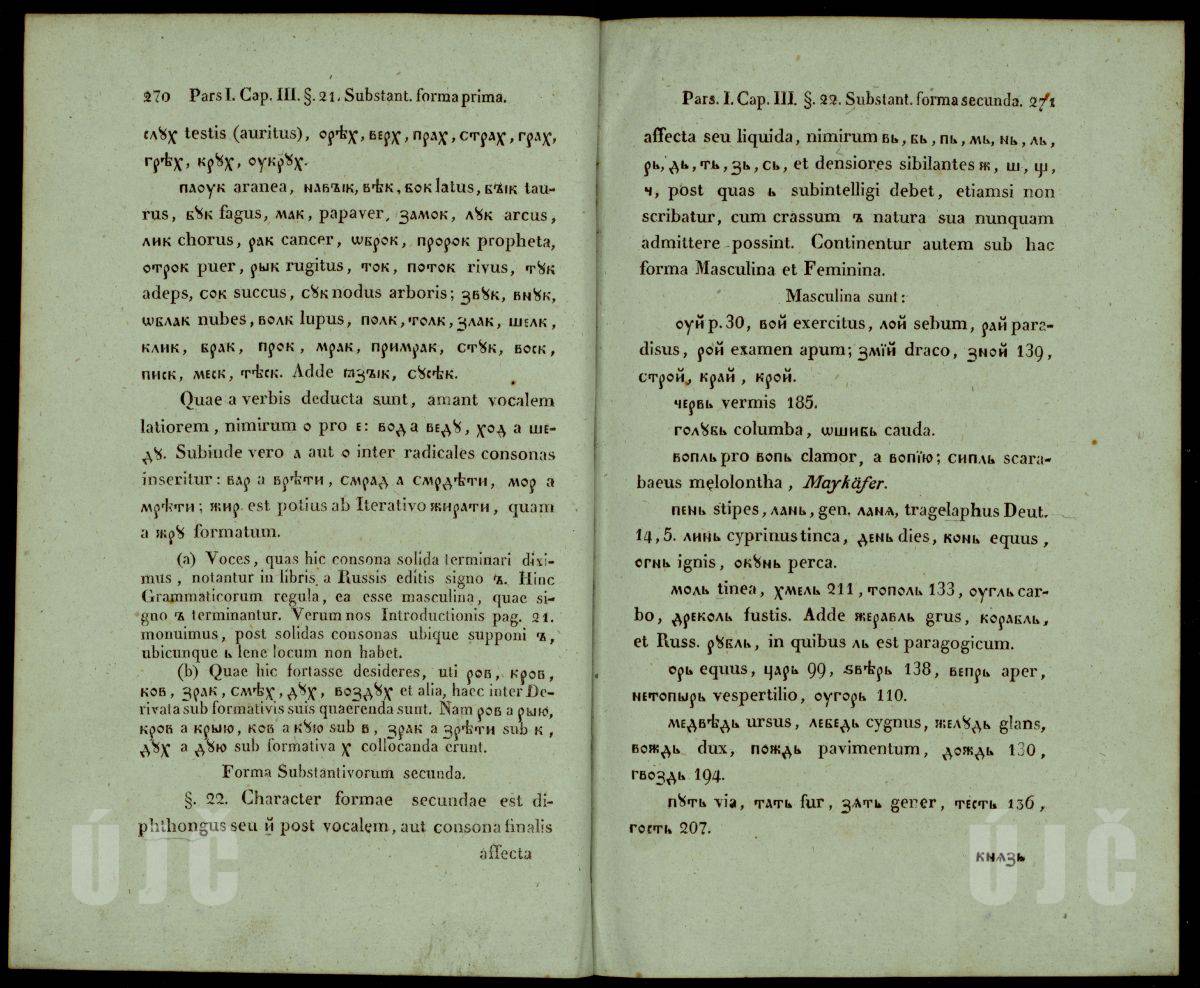 270 Pars I. Cap. III. §. 21. Substant. forma prima.
слꙋх testis (auritus), орѣх, верх, прах, страх, грах,
грѣх, крꙋх, оукрꙋх.
паоук aranea, навъік, вѣк, бок latus, бъік tau-
rus, бꙋк fagus, мак, papaver, замок, лꙋк arcus,
лик chorus, рак cancer, ѡброк, пророк propheta,
отрок puer, рык rugitus, ток, поток rivus, тꙋк
adeps, сок succus, сꙋк nodus arboris; звꙋк, внꙋк,
ѡблак nubes, волк lupus, полк, толк, злак, шелк,
клик, брак, прок, мрак, примрак, стꙋк, воск,
писк, меск, тѣск. Adde ꙗзъік, сꙋсѣк.
Quae a verbis deducta sunt, amant vocalem
latiorem, nimirum о pro е: вод а ведꙋ, ход а ше-
дꙋ. Subinde vero а aut о inter radicales consonas
inseritur: вар а врѣти, смрад а смрдѣти, мор а
мрѣти; жир est potius ab Iterativo жирати, quam
a жрꙋ formatum.
(a) Voces, quas hic consona solida terminari dixi-
mus, notantur in libris a Russis editis signo ъ. Hinc
Grammaticorum regula, ea esse masculina, quae si-
gno ъ terminantur. Verum nos Introductionis pag. 21.
monuimus, post solidas consonas ubique supponi ъ,
ubicunque ь lene locum non habet.
(b) Quae hic fortasse desideres, uti ров, кров,
ков, зрак, смѣх, дꙋх, воздꙋх et alia, haec inter De-
rivata sub formativis suis quaerenda sunt. Nam ров а рыю,
кров а крыю, ков а кꙋю sub в, зрак а зрѣти sub к,
дꙋх а дꙋю sub formativa х collocanda erunt.
Forma Substantivorum secunda.
§. 22. Character formae secundae est di-
phthongus seu й post vocalem, aut consona finalis
affecta
Pars. I. Cap. III. §. 22. Substant. forma secunda. 271
affecta seu liquida, nimirum вь, бь, пь, мь, нь, ль,
рь, дь, ть, зь, сь, et densiores sibilantes ж, ш, щ,
ч, post quas ь subintelligi debet, etiamsi non
scribatur, cum crassum ъ natura sua nunquam
admittere possint. Continentur autem sub hac
forma Masculina et Feminina.
Masculina sunt:
оуй p. 30, вой exercitus, лой sebum, рай para-
disus, рой examen apum; змїй draco, зной 139,
строй, край, крой.
червь vermis 185.
голꙋбь columba, ѡшибь cauda.
вопль pro вопь clamor, a вопїю; сипль scara-
baeus melolontha, Maykäfer.
пень stipes, лань, gen. ланѧ, tragelaphus Deut.
14, 5. линь cyprinus tinca, день dies, конь equus,
огнь ignis, окꙋнь perca.
моль tinea, хмель 211, тополь 133, оугль car-
bo, дреколь fustis. Adde жерабль grus, корабль,
et Russ. рꙋбль, in quibus ль est paragogicum.
орь equus, царь 99, ѕвѣрь 138, вепрь aper,
нетопырь vespertilio, оугорь 110.
медвѣдь ursus, лебедь cygnus, желꙋдь glans,
вождь dux, пождь pavimentum, дождь 130,
гвоздь 194.
пꙋть via, тать fur, зѧть gener, тесть 136,
гость 207.
кнѧзь
ÚJČ
ÚJČ